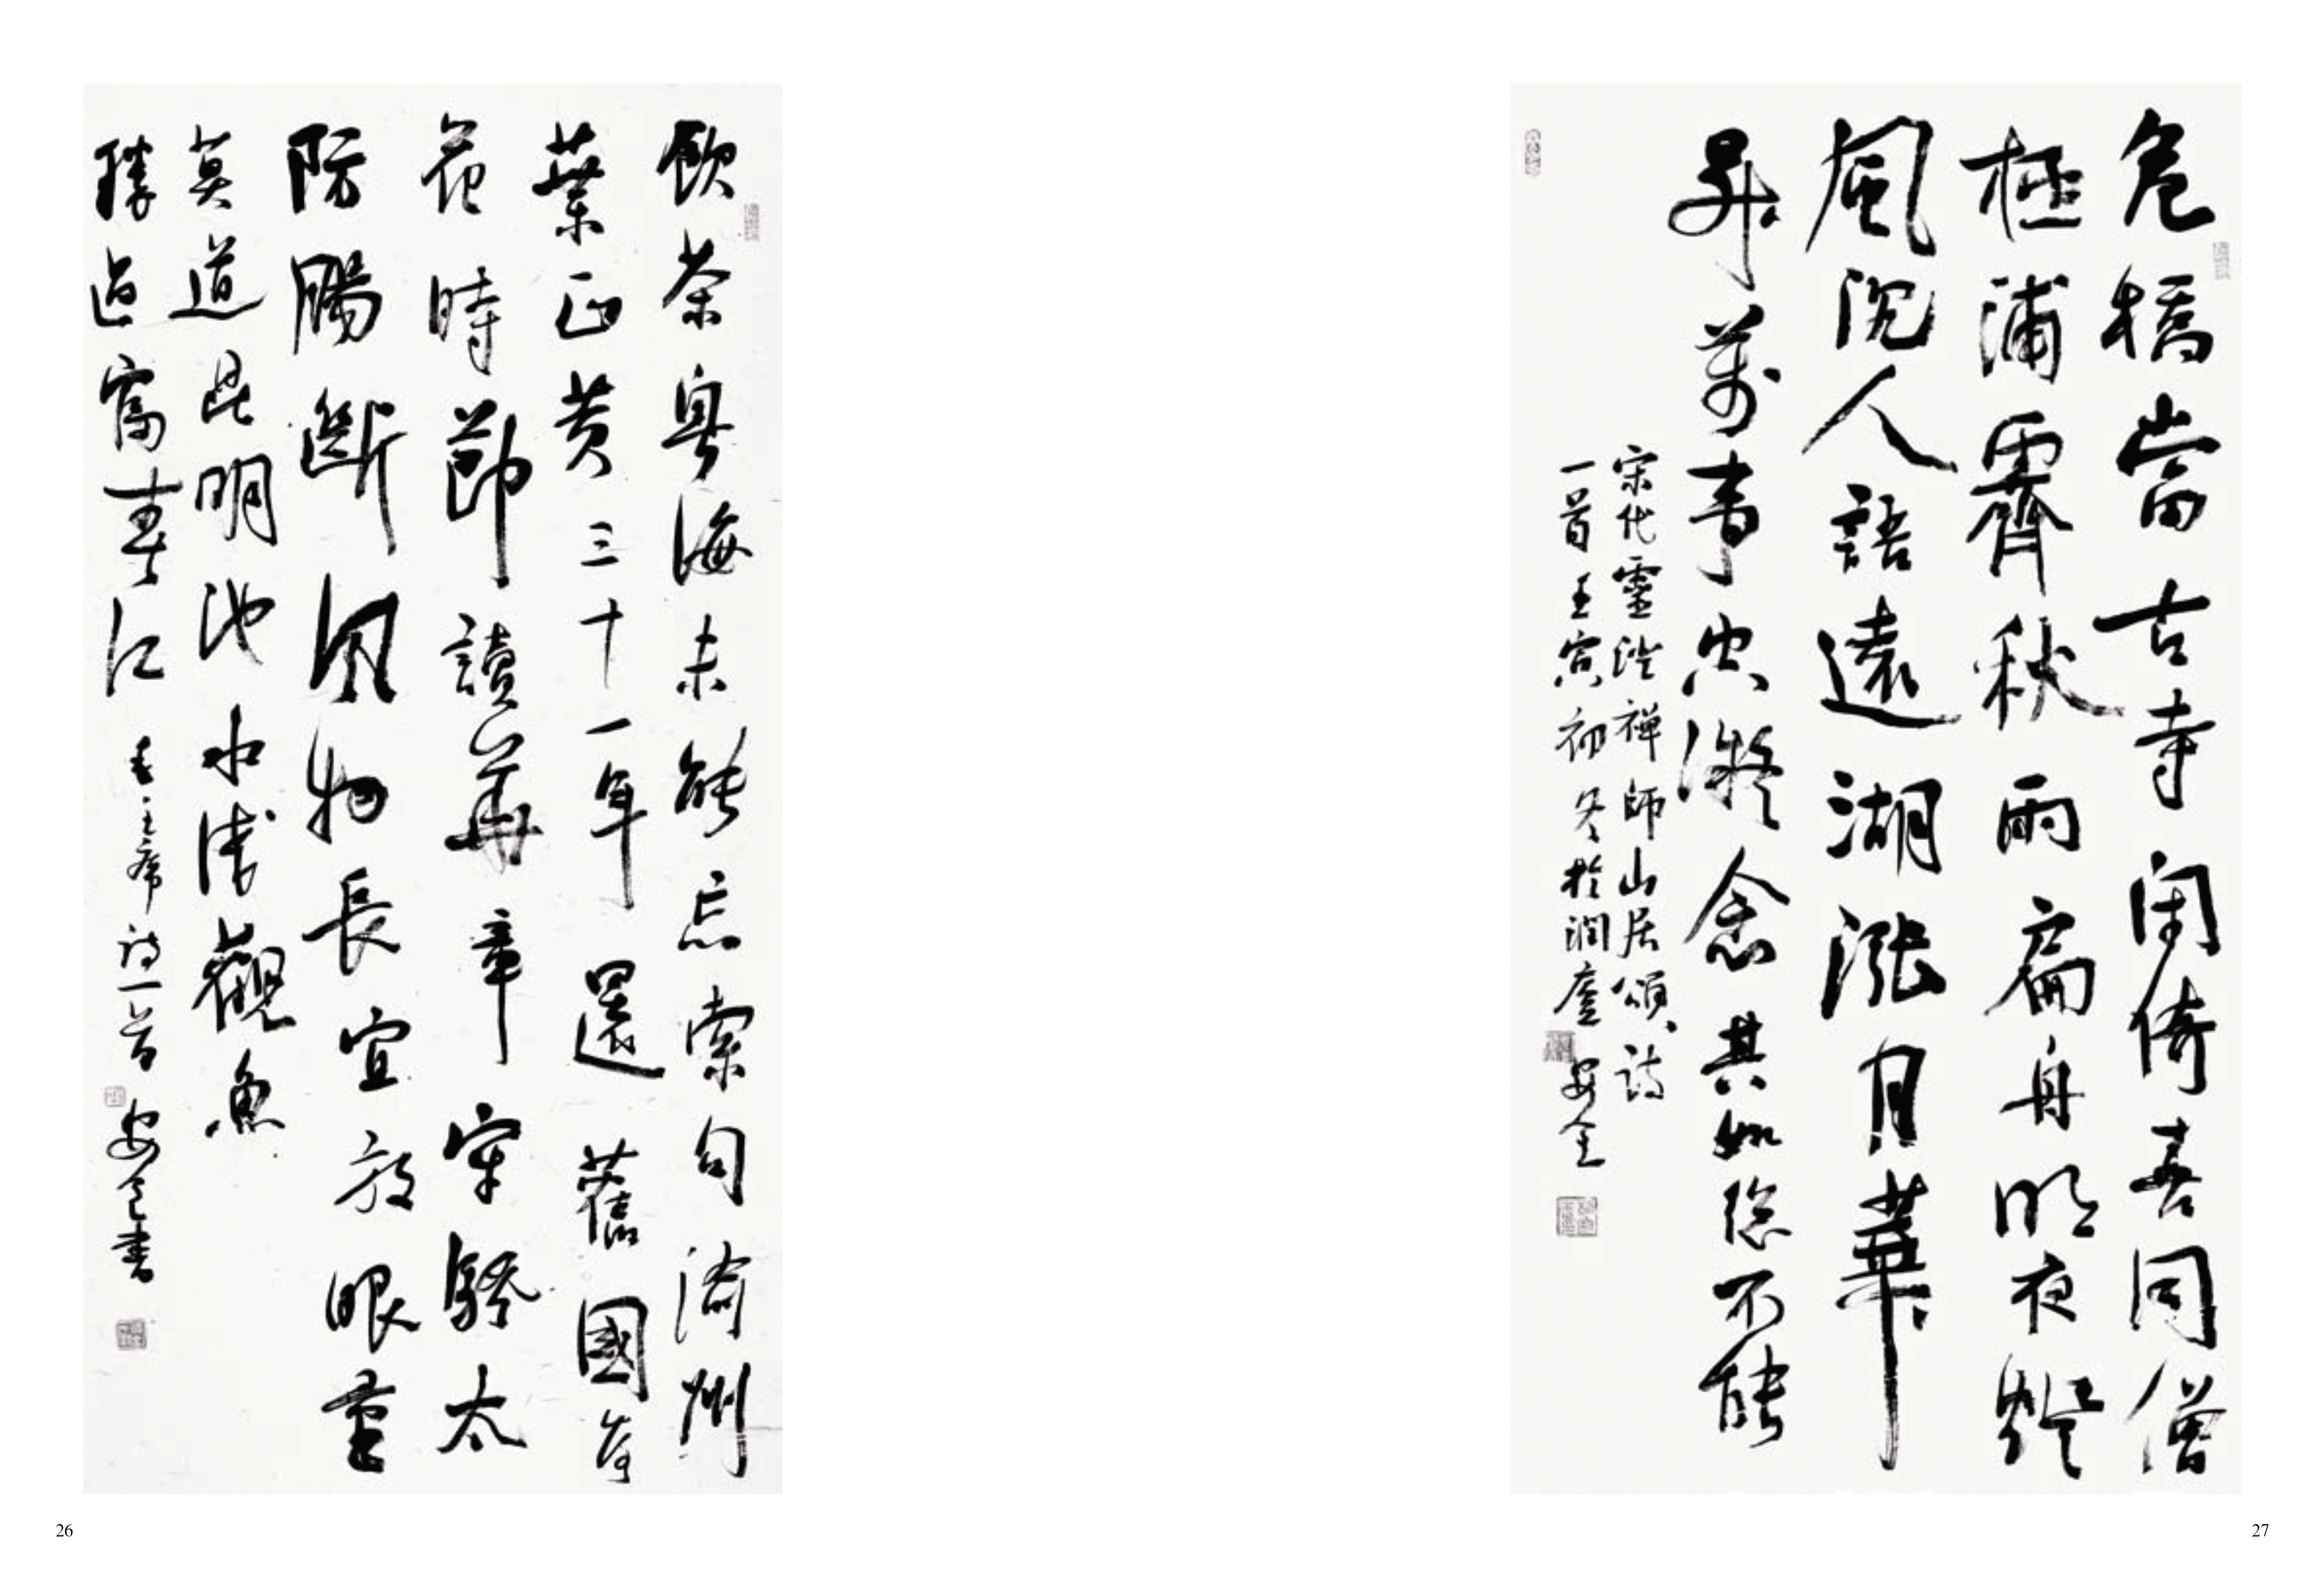 飲茶粤海未能忘索句渝州
葉正黄三十一年還舊國落
花時節讀華章牢騷太
防腸斷風物長宜放眼量
莫道昆明池水淺觀魚
勝過富春江
毛主席詩一首 安全書
26
危橋當古寺閑倚喜同僧
極浦霽秋雨扁舟明夜燈
風沉人語遠湖漲月華
昇萬事空凝念其如總不能
宋代靈澄禪師山居頌詩
一首壬寅初冬於潤廬安全
27